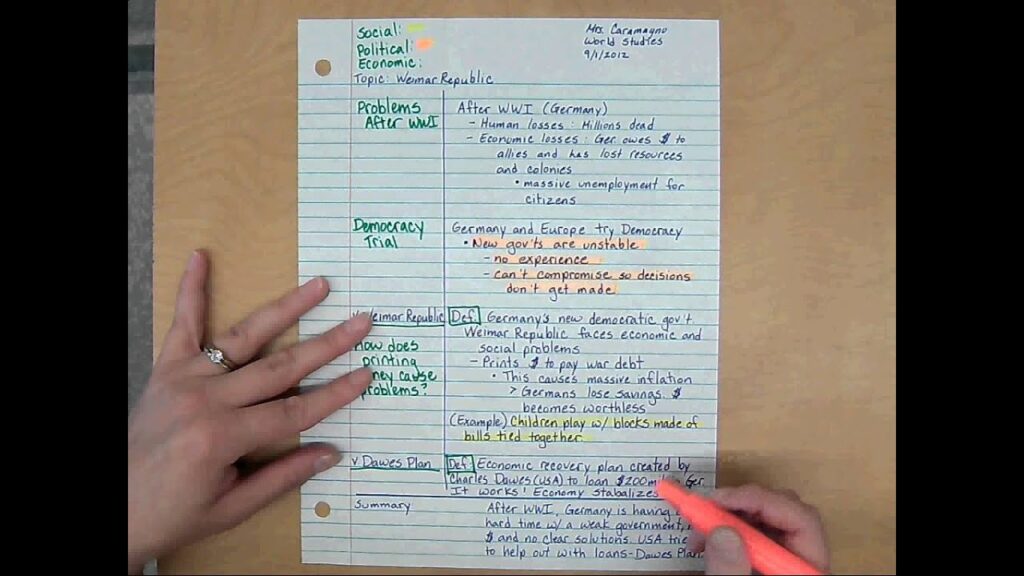 Social:
Political:
Economic:
Topic: Weimar Republic
Mrs. Caramagno
World Studies
9/1/2012
Problems
After WWI
After WWI (Germany)
- Human losses: Millions dead
- Economic losses: Ger owes $ to
allies and has lost resources
and colonies
• massive unemployment for
citizens
Democracy
Trial
Germany and Europe try Democracy
• New gov'ts are unstable
- no experience
- can't compromise so decisions
don't get made
Weimar Republic
Def: Germany's new democratic gov't
Weimar Republic faces economic and
social problems
How does
printing
cause
problems?
- Prints $ to pay war debt
• This causes massive inflation
> Germans lose savings. $
becomes worthless
(Example) Children play w/ blocks made of
bills tied together
v Dawes Plan
Def: Economic recovery plan created by
Charles Dawes (USA) to loan $200 Ger.
It works! Economy stabalizes
Summary
After WWI, Germany is having
hard time w/ a weak government,
$ and no clear solutions. USA
to help out with loans-Dawes Plan